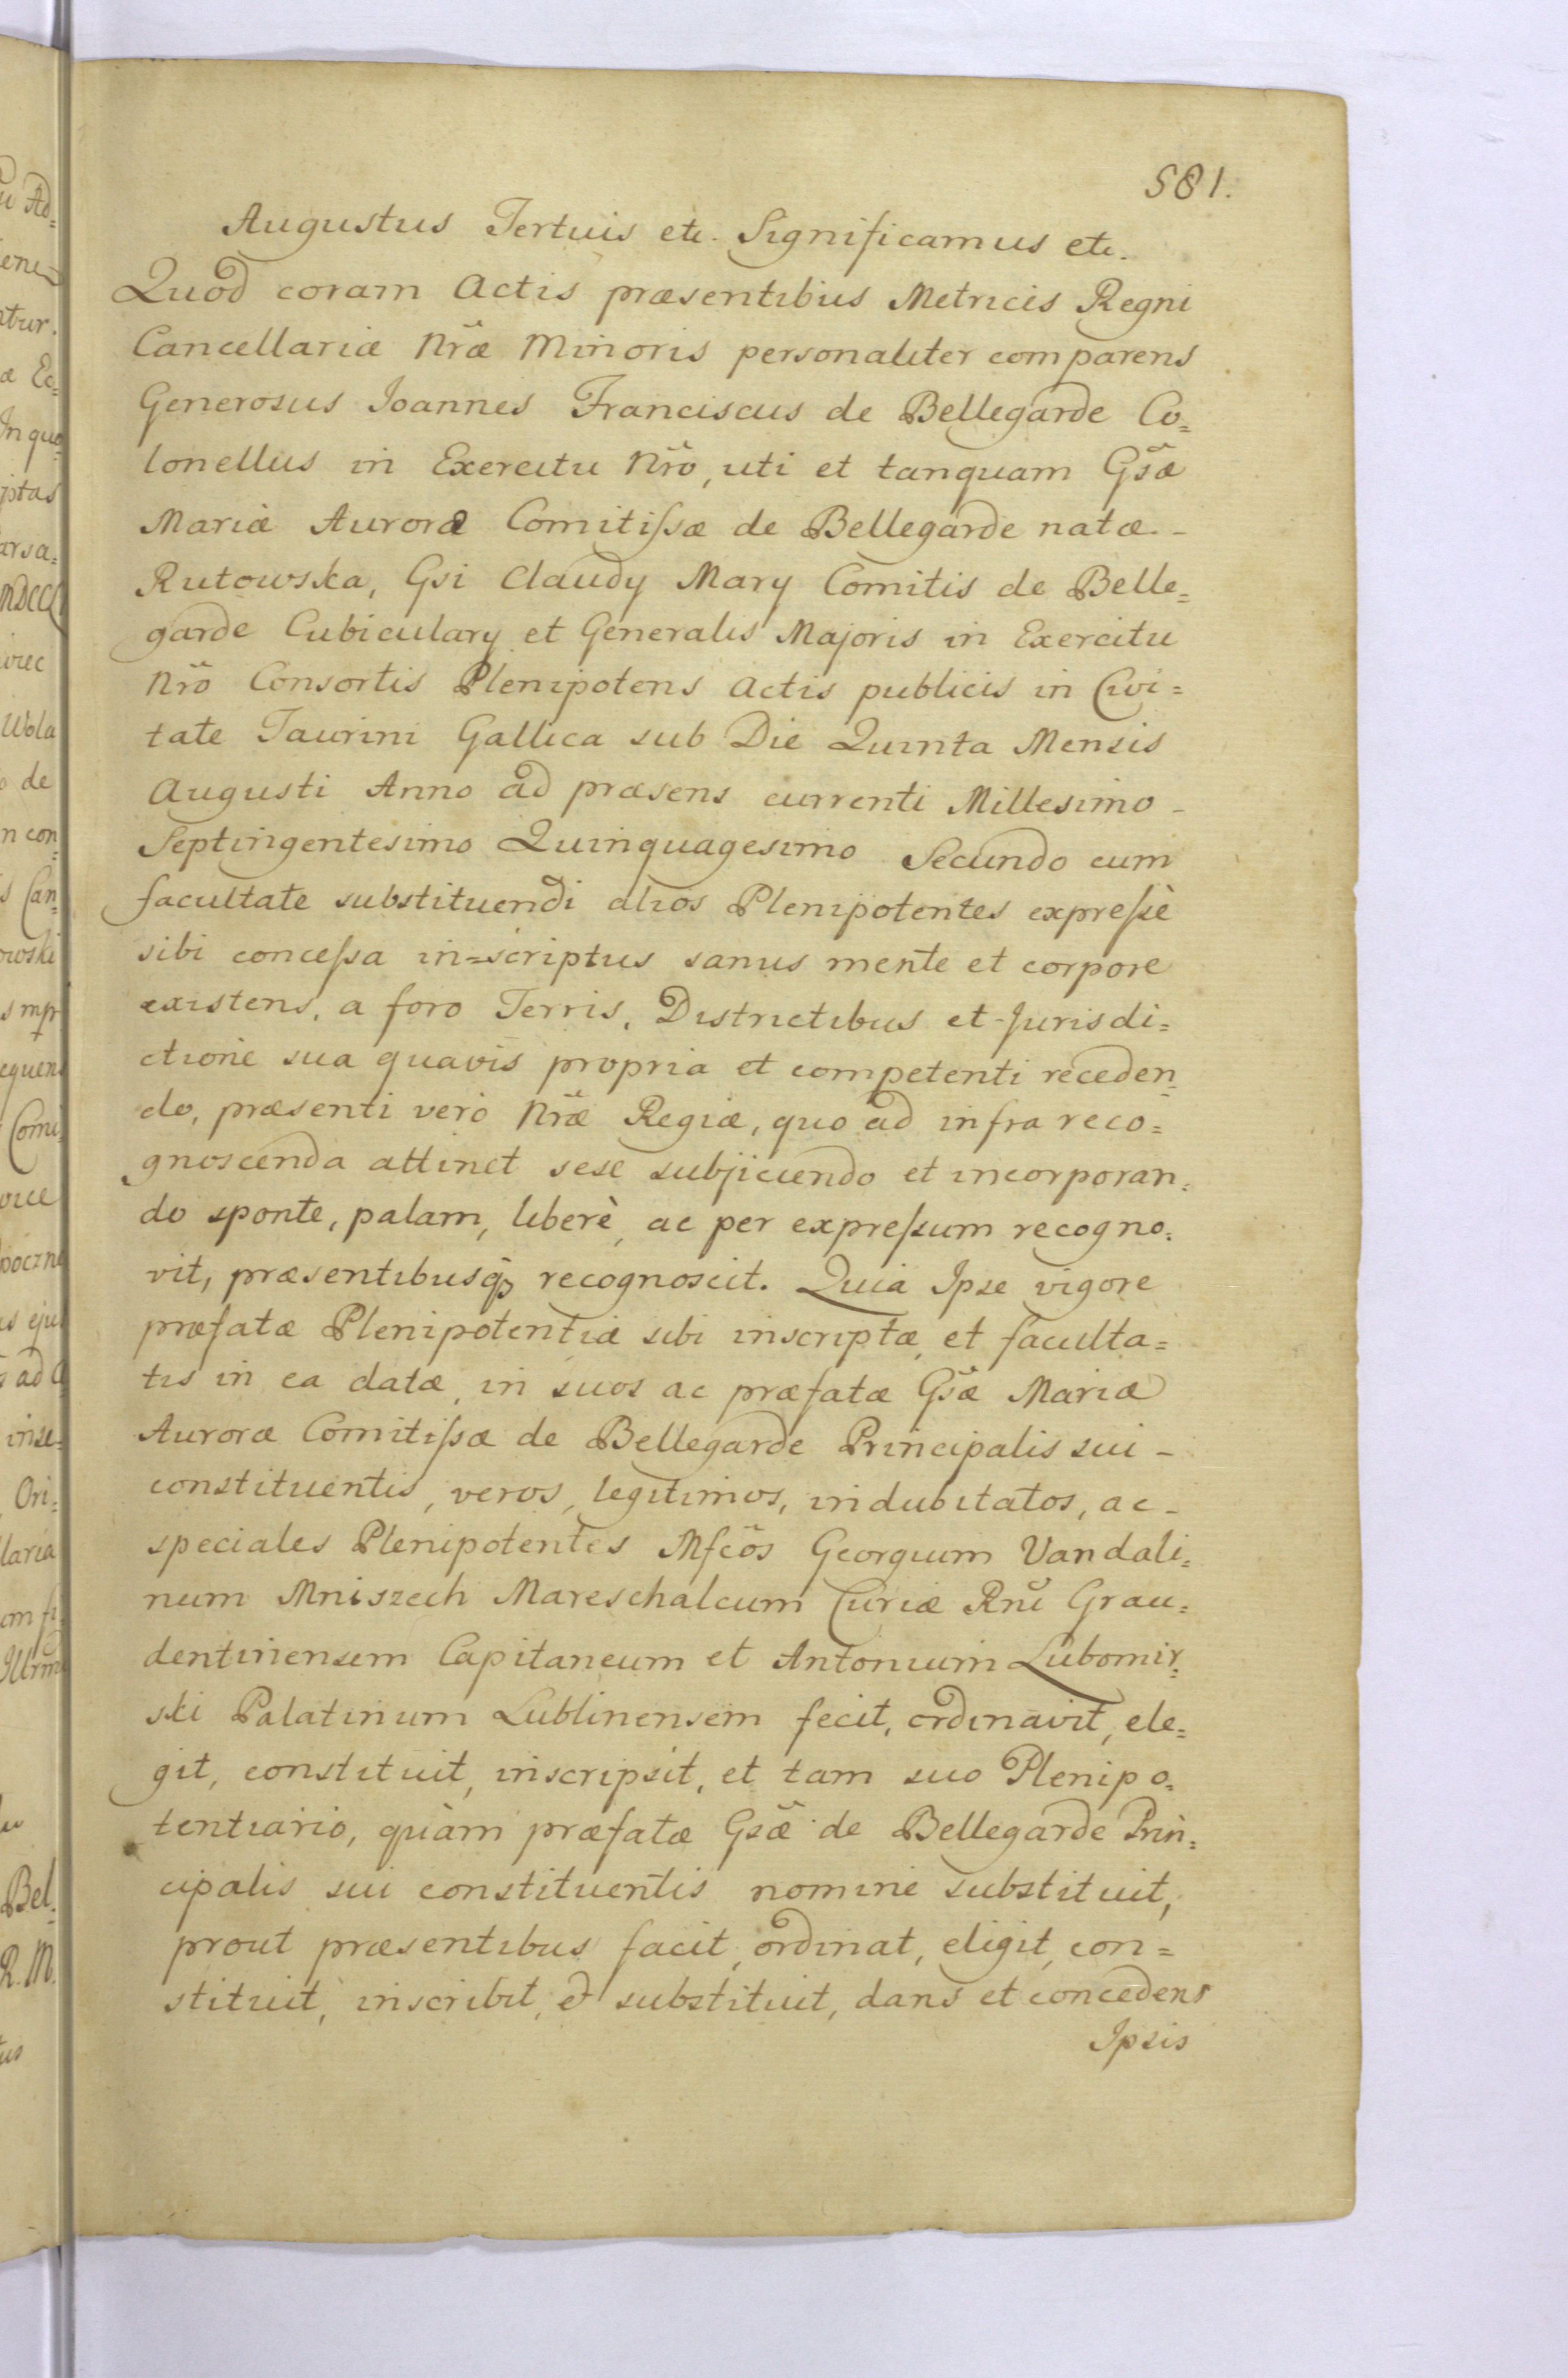 581.
Augustus Tertuis etc. Significamus etc.
Quod coram Actis præsentibus Metricis Regni
Cancellariæ Nr̃æ Minoris personaliter comparens
Generosus Joannes Franciscus de Bellegarde Co=
lonellus in Exercitu Nr̃o, uti et tanquam Gsæ̃
Mariæ Auroræ Comitissæ de Bellegarde natæ -
Rutowska, Gsi Claudy Mary Comitis de Belle=
garde Cubiculary et Generalis Majoris in Exercitu
Nr̃o Consortis Plenipotens Actis publicis in Civi=
tate Taurini Gallica sub Die Quinta Mensis
Augusti Anno ad præsens currenti Millesimo -
Septingentesimo Quinquagesimo Secundo cum
facultate substituendi alios Plenipotentes expressè
sibi concessa in=scriptus sanus mente et corpore
existens, a foro Terris, Districtibus et Jurisdi=
ctione sua quavis propria et competenti receden=
do, præsenti verò Nr̃æ Regiæ, quo ad infra reco=
gnoscenda attinet sese subjiciendo et incorporan=
do sponte, palam, liberè, ac per expressum recogno=
vit, præsentibusq; recognoscit. Quia Ipse vigore
præfatæ Plenipotentiæ sibi inscriptæ, et faculta=
tis in ea datæ, in suos ac præfatæ Gsæ̃ Mariæ
Auroræ Comitissæ de Bellegarde Principalis sui -
constituentis, veros, legitimos, indubitatos, ac -
speciales Plenipotentes Mfcõs Georgium Vandali=
num Mniszech Mareschalcum Curiæ Rnĩ Grau=
dentinensem Capitaneum et Antonium Lubomir=
ski Palatinum Lublinensem fecit, ordinavit, ele=
git, constituit, inscripsit, et tam suo Plenipo=
tentiario, quàm præfatæ Gsæ̃ de Bellegarde Prin=
cipalis sui constituentis nomine substituit,
prout præsentibus facit, ordinat, eligit, con=
stituit, inscribit, et substituit, dans et concedens
Ipsis